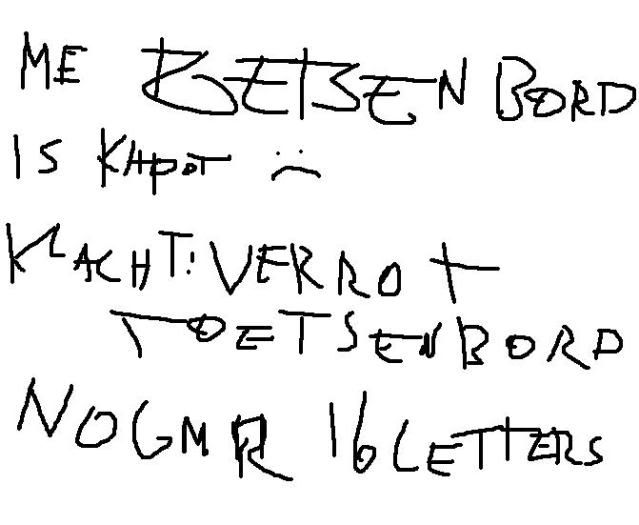 ME BETSENBORD
IS KAPOT :(
KLACHT: VERROT
TOETSENBORD
NOG MR 16 LETTERS